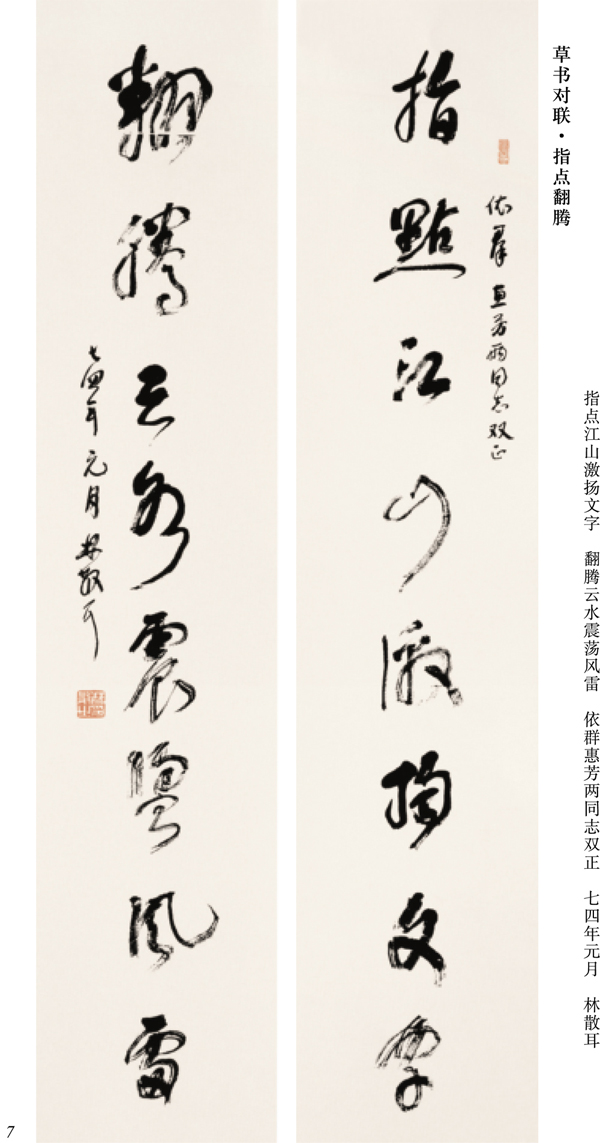 草书对联·指点翻腾
指点江山激扬文字 翻腾云水震荡风雷 依群惠芳两同志双正 七四年元月 林散耳
依群惠芳两同志双正
指點江山激揚文字
翻騰云水震盪風雷
七四年元月林散耳
7